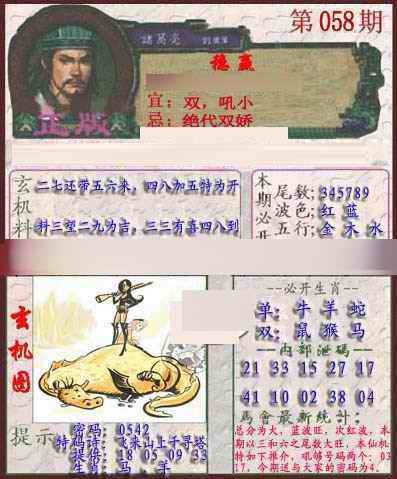 第058期
諸葛亮
稳赢
宜：双，吼小
忌：绝代双娇
正版
玄机料
二七还带五六来，四八加五特为开
料三望二九为吉，三三有喜四八到
本期必开
尾数：345789
波色：红 蓝
五行：金 木 水
玄机图
--必开生肖--
单：牛 羊 蛇
双：鼠 猴 马
--内部泄码--
21 33 15 27 17
41 10 02 38 04
馬會最新統计：
总分为大，蓝波旺，次红波，本
期以三和六之尾数大旺，本仙机
特如下推介，吼够号码两个：03
17，今期送与大家的密码为4.
提示
密码：0542
特码诗：飞来山上千寻塔
提供：18 05 09 33
生肖：马、羊